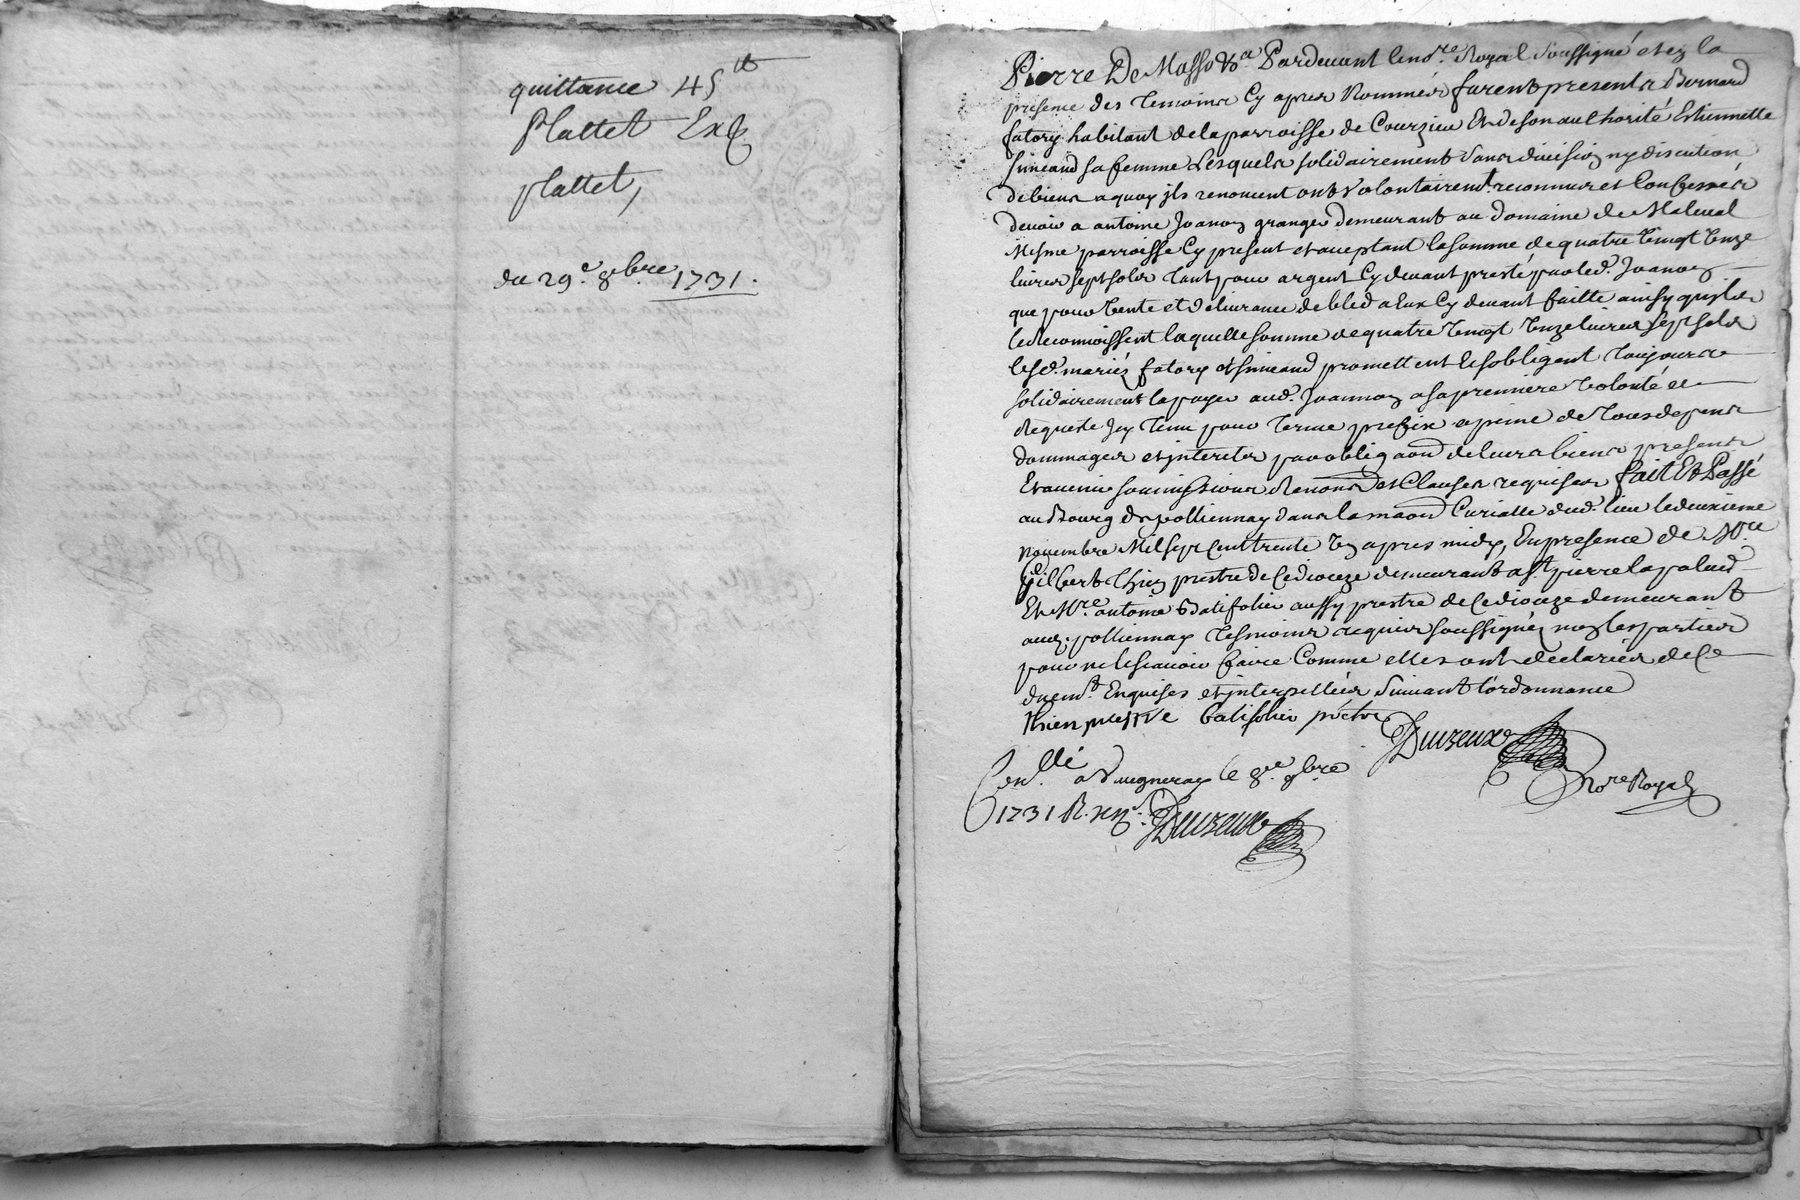 quittance 45lt
Plattet Exp
plattet,
du 29e. 8bre 1731.
Pierre De Masso &a Pardevant le nore. Royal soussigné et en la
presence des temoins cy apres Nommés furent presents Bernard
fatory habitant de la parroisse de Courzieu Et de son authorité Estiennette
simeand sa femme Lesquels solidairement sans division ny discution
de biens a quoy ils renoncent ont volontairemt. reconnus et Confessés
devoir a antoine Joanon granger demeurant au domaine de Maleval
Mesme parroisse Cy present et acceptant la somme de quatre vingt unze
livres sept sols tant pour argent Cy devant presté par led. Joanon
que pour vente et delivrance de bled a Eux Cy devant faitte ainsy quils
le reconnoissent laquelle somme de quatre vingt unze livres sept sols
lesd. mariés fatory et simeand promettent et sobligent toujours
solidairement la payer aud. Joannon a sa premiere volonté et
Requeste Icy tenu pour terme prefix a peine de tous depens
dommages et interets par obligaon de leurs biens presents
Et avenir soumissions Renons et Clauses requises fait Et Passé
au Bourg de pollionnay dans la maon Curialle dud. lieu le deuxieme
Novembre Mil sept Cent trente un apres midy, En presence de Mre
Gilbert thien prestre de Ce dioceze demeurant a st pierre la palud
Et Mre. antoine Batifolier aussy prestre de Ce dioceze demeurant
aud. pollionnay tesmoins requis soussignés non les parties
pour ne le scavoir faire Comme elles ont declarées de Ce
duemt. Enquises et interpellées suivant l'ordonnance
thien prestre batifolier prétre Duizeux
nore Royal
Conllé a Vaugneray le 8e. 9bre
1731 R. Duizeux